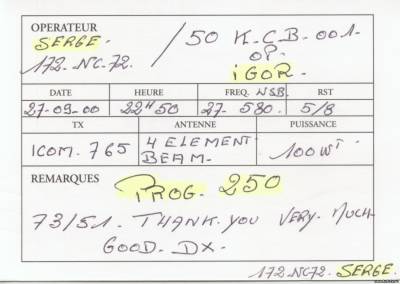 OPERATEUR
SERGE.
172.NC.72.
/50 K.C.B.001.
OP.
IGOR.
DATE HEURE FREQ. USB. RST
27-09-00 22H50 27-580. 5/8
TX ANTENNE PUISSANCE
ICOM. 765 4 ELEMENT BEAM. 100WT
REMARQUES
PROG. 250
73/51. THANK.YOU VERY.MUCH
GOOD.DX.
172.NC72. SERGE.